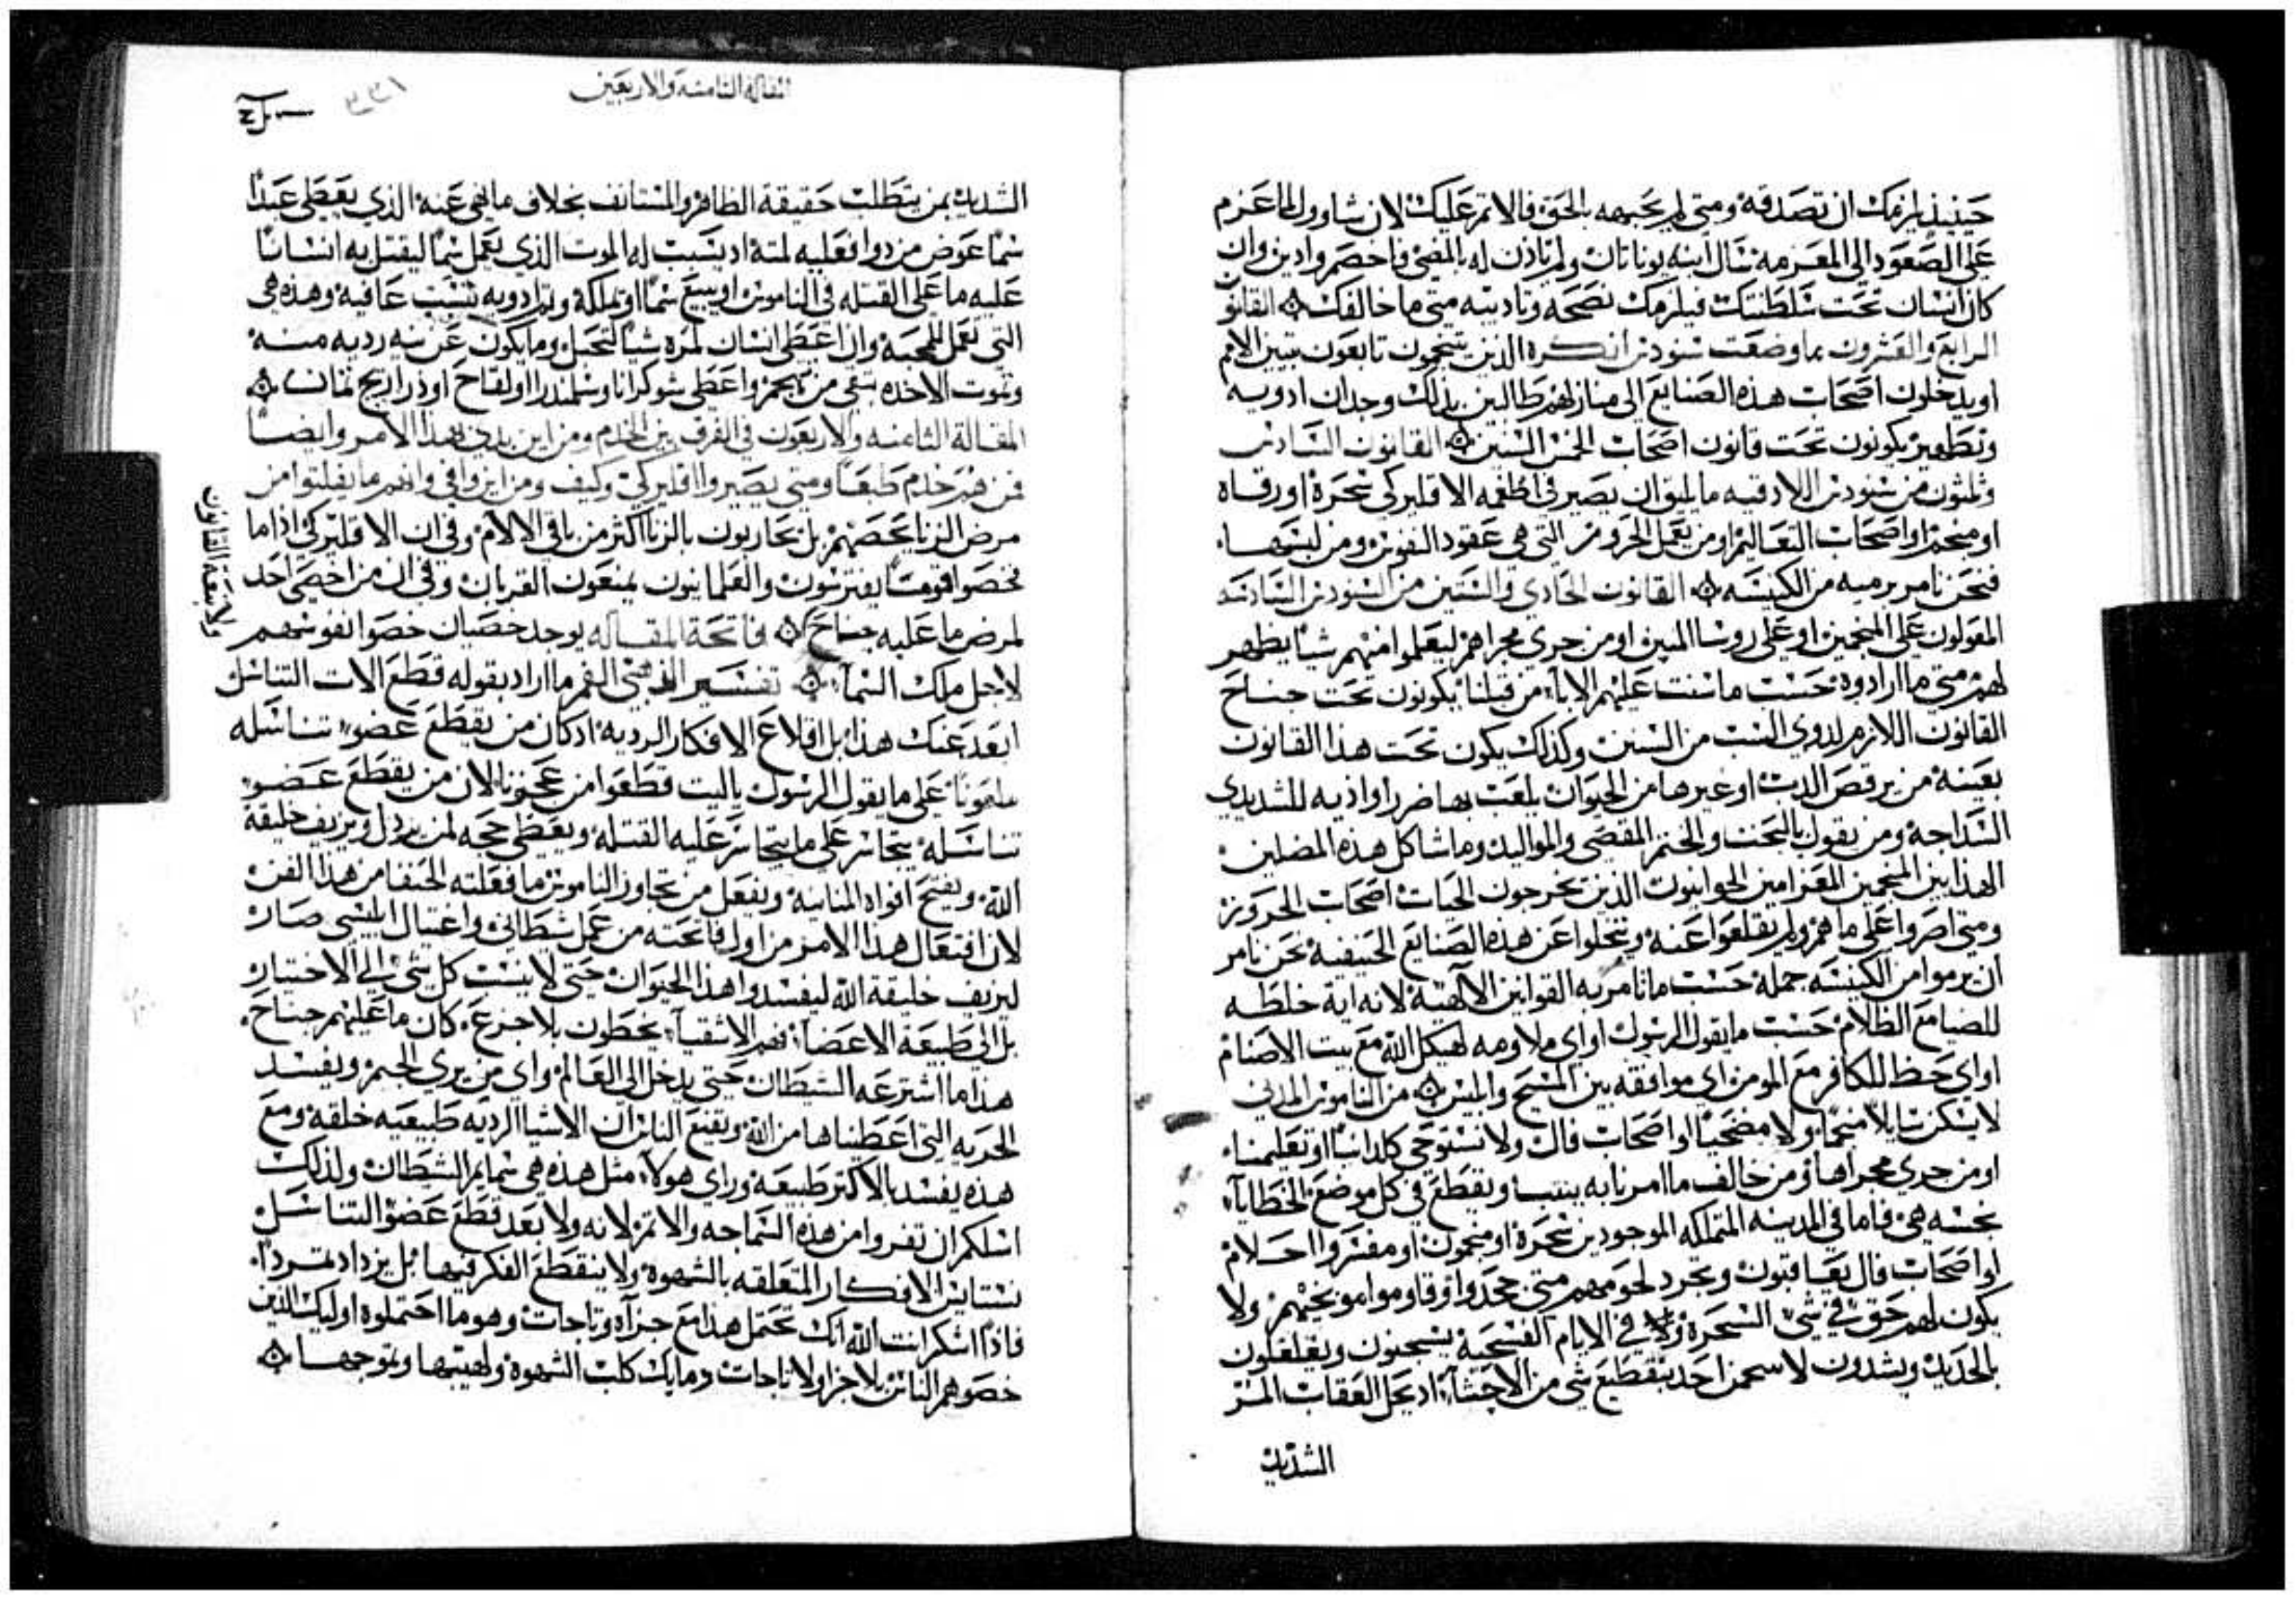 حينيذ يلزمك ان تصدقه ومتي لم تجبهه بالحق فالاثم عليك لان شاوول لما عزم
علي الصعود الي المعزمه سال ابنه يوناثان ولم ياذن له بالمضي فاخصم وادين وان
كان انسان تحت سلطنتك فيلزمك نصحه وتاديبه متي ما خالفك القانون
الرابع والعشرون مما وضعت سنودس انكره الذين يتنجمون تابعون سنن الامم
او يدخلون اصحاب هذه الصنايع الي منازلهم طالبين بذلك وجدان ادويه
وتطهير يكونون تحت قانون اصحاب الخمس السنين القانون السادس
وثلثون من سنودس اللادقيه ما يليق ان يصير في اطغمه الاقليركي سحرة او رقاه
او منجم او اصحاب التعاليم او من يعمل الحروز التي هي عقود النفوس ومن لبسها
فنحن نامر برميه من الكنيسه القانون الحادي والستين من السنودس السادسه
المعولون علي المنجمين او علي روسا الميين او من جري مجراهم ليعلموا منهم شيا يظهر
لهم متي ما ارادوه حسب ما سنت عليهم الاباء من قبلنا يكونون تحت جناح
القانون اللازم لدوي الست من السنين وكذلك يكون تحت هذا القانون
بعينه من يرقص الدب او غيرها من الحيوان يلعب بها ضررا واذيه للشديدي
السداجه ومن يقول بالبخت والختم المقضي والمواليد وما شاكل هذه المضلين
الهذايين المنجمين المعزامين الحوابيون الذين يخرجون الحيات اصحاب الحروز
ومتي اصروا علي ما هم ولم يقلعوا عنه ويتخلوا عن هذه الصنايع الحنيفيه نحن نامر
ان يرموا من الكنيسه جمله حسب ما تامر به القوانين الالهية لانه اية خلطه
للضيا مع الظلام حسب ما يقول الرسول او اي ملاومه لهيكل الله مع بيت الاصنام
او اي حظ للكافر مع المومن اي موافقه بين المسيح وابليس من الناموس المدني
لا يسكن سايلا منجما ولا مضحيا او اصحاب فال ولا نستوحي كلدانيا او تعليمنا
او من جري مجراها ومن خالف ما امرنا به ويقطع في كل موضع الخطايا
نجسه هي فاما في المدينه المتملكه الموجودين سحرة او منجمون او مفسروا احلام
او اصحاب فال يعاقبون ويجرد لحومهم متي جحدوا وقاوموا موبخيهم ولا
يكون لهم حق في شي السحرة ولا في الايام الفسحية يسجنون ويغلغلون
بالحديد ويشدون لا سمحن احد بتقطيع شي من الاحشاء اد يحل العقاب المر
الشديد
المقالة الثامنه والاربعين
٣٣١
الشديد بمن يتطلب حقيقة الظاهر والمستانف بخلاف ما نهي عنه الذي يعطي عبدا
سما عوض من دوا فعليه لمته اد يسبب له الموت الذي يعمل سما ليقتل به انسانا
عليه ما علي القتله في الناموس او يبيع سما او تملكه وبرادويه تنسب عافيه وهذه هي
التي تعمل للمحبه وان اعطي انسان لمره شيا لتحبل وما يكون عن نيه رديه منه
وتموت الاخده تنفي من تهجم واعطي شوكرانا وسلمندرا او لقاح او ذراريح ثمان
المقالة الثامنه والاربعون في الفرق بين الخدم ومن اين بدي هذا الامر وايضا
فمن هم خدم طبعا ومتي يصيروا اقليركي وكيف ومن اين وافي وانهم ما يفلتوا من
مرض الزنا بخصيهم بل يحاربون بالزنا اكثر من باقي الالام وفي ان الاقليركي اذا ما
نخصوا قوما يفترسون والعلمانيون يمنعون القربان وفي ان من اخصي احد
لمرض ما عليه جناح فاتحة المقاله يوجد خصيان خصوا نفوسهم
لاجل ملك السما تفسير الذهبي الفم ما اراد بقوله قطع الات التناسل
ابعد عنك هذا بل اقلاع الافكار الرديه اد كان من يقطع عضو تناسله
ملعونا علي ما يقول الرسول ياليت قطعوا من عجنونا لان من يقطع عضو
تناسله يتجاسر علي ما يتجاسر عليه القتله ويعطي حجه لمن يردل ويزيف خليقة
الله ويفتح افواه المنانيه ويفعل من تجاوز الناموس ما فعلته الحنفا من هذا الفن
لان افتعال هذا الامر من اول فاتحته من عمل شطاني واغتيال ابليسي صار
ليزيف خليقة الله ليفسدوا هذا الحيوان حتي لا ينسب كل شي الي الاختيار
بل الي طبيعة الاعضا فهم الاشقيا يخطون بلا جزع كان ما عليهم جناح
هذا ما اشترعه الشيطان حتي يدخل الي العالم واي من يري الختم ويفسد
الحريه التي اعطيناها من الله ويقنع الناس ان الاشيا الرديه طبيعيه خلقه ومع
هذه يفسد بالاكثر طبيعة وراي هولاء مثل هذه هي سمايم الشيطان ولذلك
اسلكم ان تفروا من هذه السماجه والاثم لانه ولا بعد قطع عضو التناسل
نستايس الافكار المتعلقه بالشهوة ولا ينقطع الفكر فيها بل يزداد تمردا
فاذا اشكر انت الله انك تحتمل هذا مع جزآء وتاجات وهو ما احتملوه اوليك الذين
خصوهم الناس بلا جزا ولا تاجات دمايك كلب الشهوة ولهيبها وتوجهها